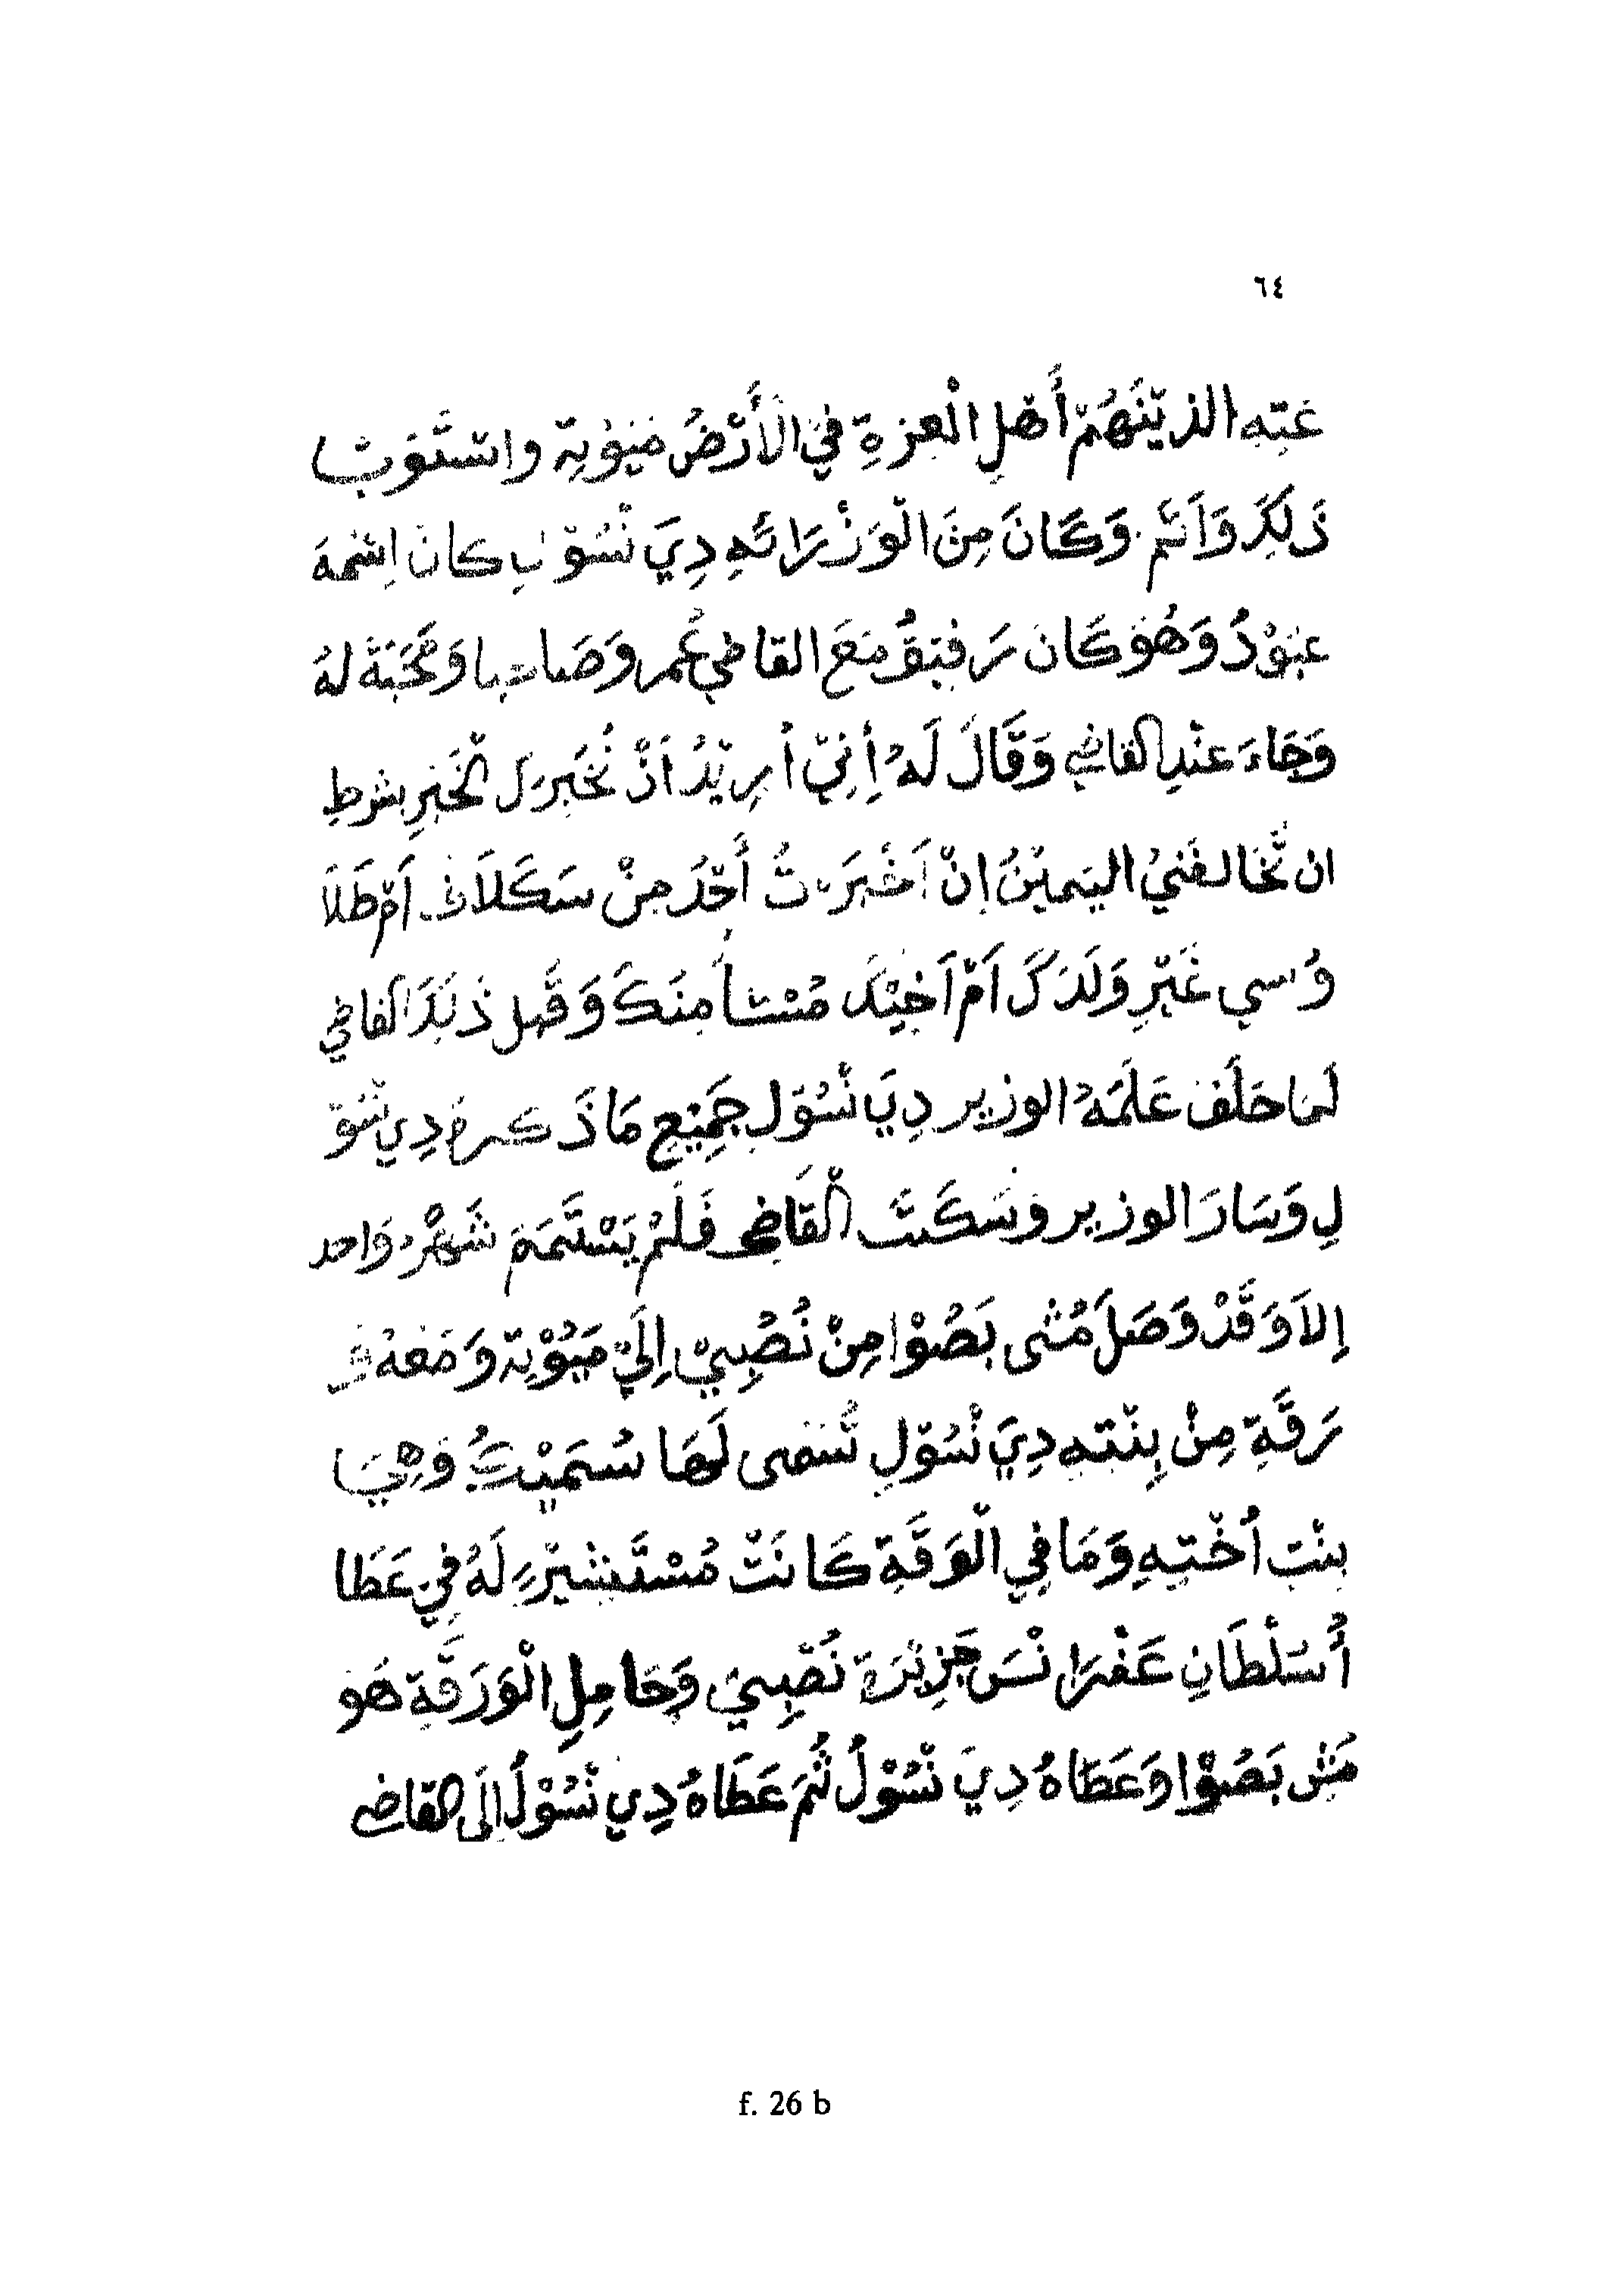 ٦٤
عَتِهِ الذيْنَهُمْ أَهْلِ الْعِزةِ فِي الْأَرْضُ مَيُوْتِة واسْتَوَت
ذَلِكَ وَاَتَم. وَكَانَ مِنَ الْوَزْرَائهِ دِيَ نْسُوْلِ كانَ اِسْمهَ
عَبُوْدُ وَهُوَ كَانَ رَفِيْقُ مَعَ القاضِي عُمر وَصَاحِبا وَمَحَبَةَ لهُ
وَجَاءَ عنْدِ القاضِي وَقَالَ لَهُ إِنِيّ أُرِيْدُ اَنْ نُخْبِرَكَ الْخَبَرِ بشرطِ
ان تُخَالفَنيْ اليَمِيْنُ إِنْ اَخْبَرْتُ أَحْدَ مِنْ سَكَلَاڤ. اَمْ طَلَا
وُسي غَيْرِ وَلَدَكَ اَمْ اَخِيْكَ مُنْشَأ مِنَكَ وَقَبِل ذَلِكَ القاضِي
لَمَا حَلَفَ عَلَمَهُ الوزير دِيَ نْسُوْلِ جَمِيْعِ مَا ذَكرهُ دِي نْسُوْ
لِ وَسَارَ الوزير وَسَكَتَ الْقَاضِي فَلَمْ يَسْتَمَمَ شَهْرُ وَاحد
إِلاَ وَقَدْ وَصَلَ مُشى بَصُوْا مِنْ نُصْبِيْ إِلَيْ مَيُوْتِة وَمَعَهُ وَ
رَقَةِ مِنْ بِنْتهِ دِيَ نْسُوْلِ تُسَمى لَهَا سُمَيْتُ وَهِيَ
بِنْتِ أُخْتِهِ وَمَا فِي الْوَرَقَةِ كَانَتْ مُسْتَشِيْرَةِ لَهُ فِي عَطَا
أُسْلْطَانِ عَفْرَانْسَ جَزِيْرَة نُصْبِيْ وَحَامِلِ الْوَرَقَةِ هَوَ
مَشِ بَصُوْا وَعَطَاهُ دِيَ نْسُوْلُ ثُمَ عَطَاهُ دِي نْسُوْلُ اِلَى القاضِي
f. 26 b